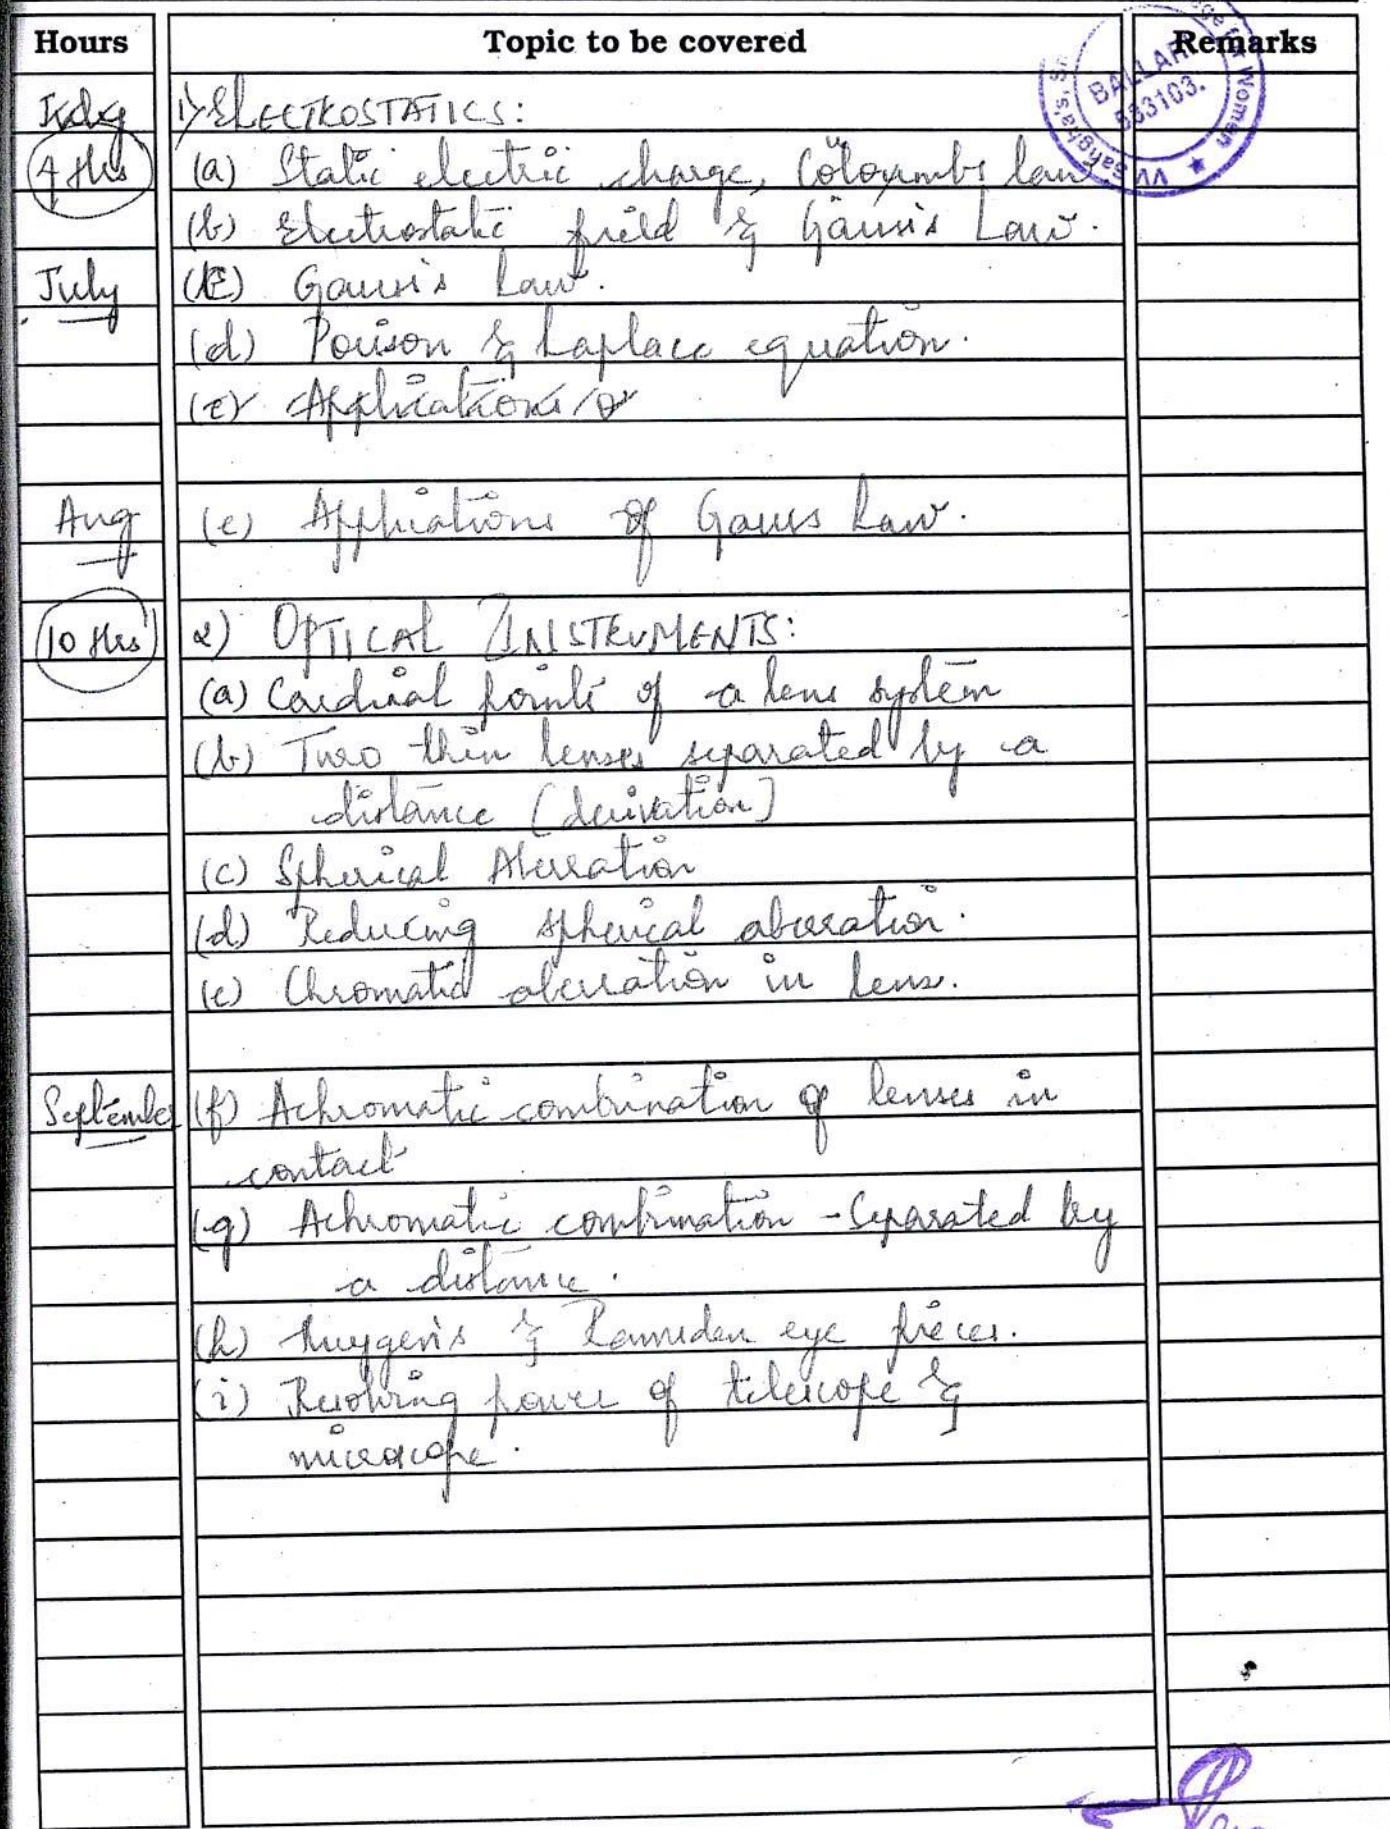 Hours Topic to be covered Remarks
1) ELECTROSTATICS:
4 Hrs (a) Static electric charge, Coloumbs law
(b) Electrostatic field & Gauss's Law.
July (c) Gauss's Law.
(d) Poison & Laplace equation.
(e) Applications
Aug (e) Applications of Gauss Law.
10 Hrs 2) OPTICAL INSTRUMENTS:
(a) Cardinal points of a lens system
(b) Two thin lenses separated by a
distance (derivation)
(c) Spherical Aberration
(d) Reducing spherical aberration.
(e) Chromatic aberration in lens.
September (f) Achromatic combination of lenses in
contact
(g) Achromatic combination - Separated by
a distance.
(h) Huygen's & Ramsden eye pieces.
(i) Resolving power of telescope &
microscope.
BALLARI
583103.
VV Sangha's, for Women